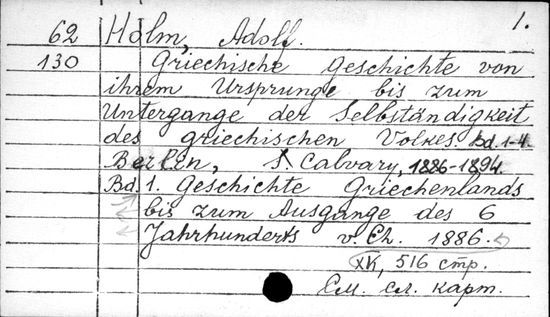 1.
62 Holm, Adolf.
130 Griechische Geschichte von
ihrem Ursprunge bis zum
Untergange der Selbständigkeit
des griechischen Volkes. Bd. 1-4.
Berlin, S. Calvary, 1886-1894.
Bd. 1. Geschichte Griechenlands
bis zum Ausgange des 6
Jahrhunderts v. Ch. 1886.
XK, 516 стр.
См. сл. карт.